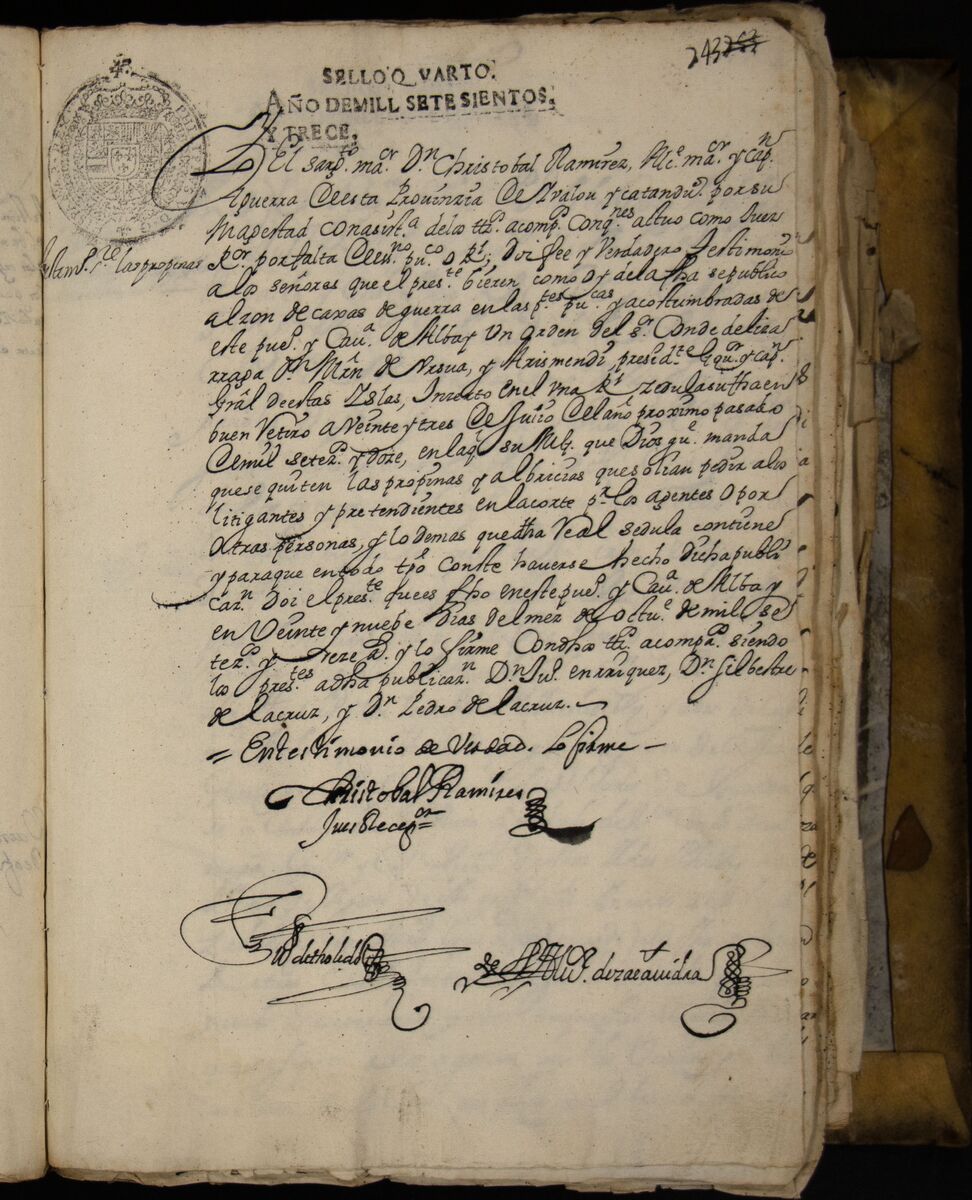 243
SELLO QVARTO.
AÑO DE MILL SETESIENTOS,
Y TRECE,
El sargto. maor. Dn. Christobal Ramirez, Alce. maor. y capn.
aguerra de esta Provinzia de Yvalon y catandus. por su
Magestad con asista. de los ttos. acompdos. con qnes. actuo como Juez
Ror. por falta de esno. puco. o Rl; Doi fee y Verdadero testimonio
a los señores que el preste. bieren, como oy dela fha se publico
al zon de caxas de guerra en las ptes. pucas. y acostumbradas de
este puo. y Cava. de Albay Un orden del sr. Conde de liza
rraga Dn. Mrn. de Vrsua, y Arismendi, presidte. Govr. y capn.
Gral de estas Yslas, Inserto en el Una Rl. zedula su fha en
buen Retiro a Veinte y tres de Junio del año proximo pasado
de mill setezs. y doze, en la qe. su Mag. que Dios gue. manda
que se quiten las propinas y albricias que solian pedir a los
litigantes y pretendientes en la corte pr. los agentes o por
otras personas, y lo demas que dha Real sedula contiene
y para que en todo tpo. conste haverse hecho dicha publi
cazn. Doi el preste. que es fho en este puo. y Cava. de Albay
en Veinte y nuebe Dias del mez de Octue. de mil se
tezs. y treze as. y lo firme con dhos ttos. acompdos. siendo
los prestes. a dha publicazn. Dn. Jun. enrriquez, Dn. silbestre
de la cruz, y Dn. Pedro de la cruz.
= En testimonio de Verdad. Lo firme -
Christobal Ramires
Jues Recepor.
de tholedo